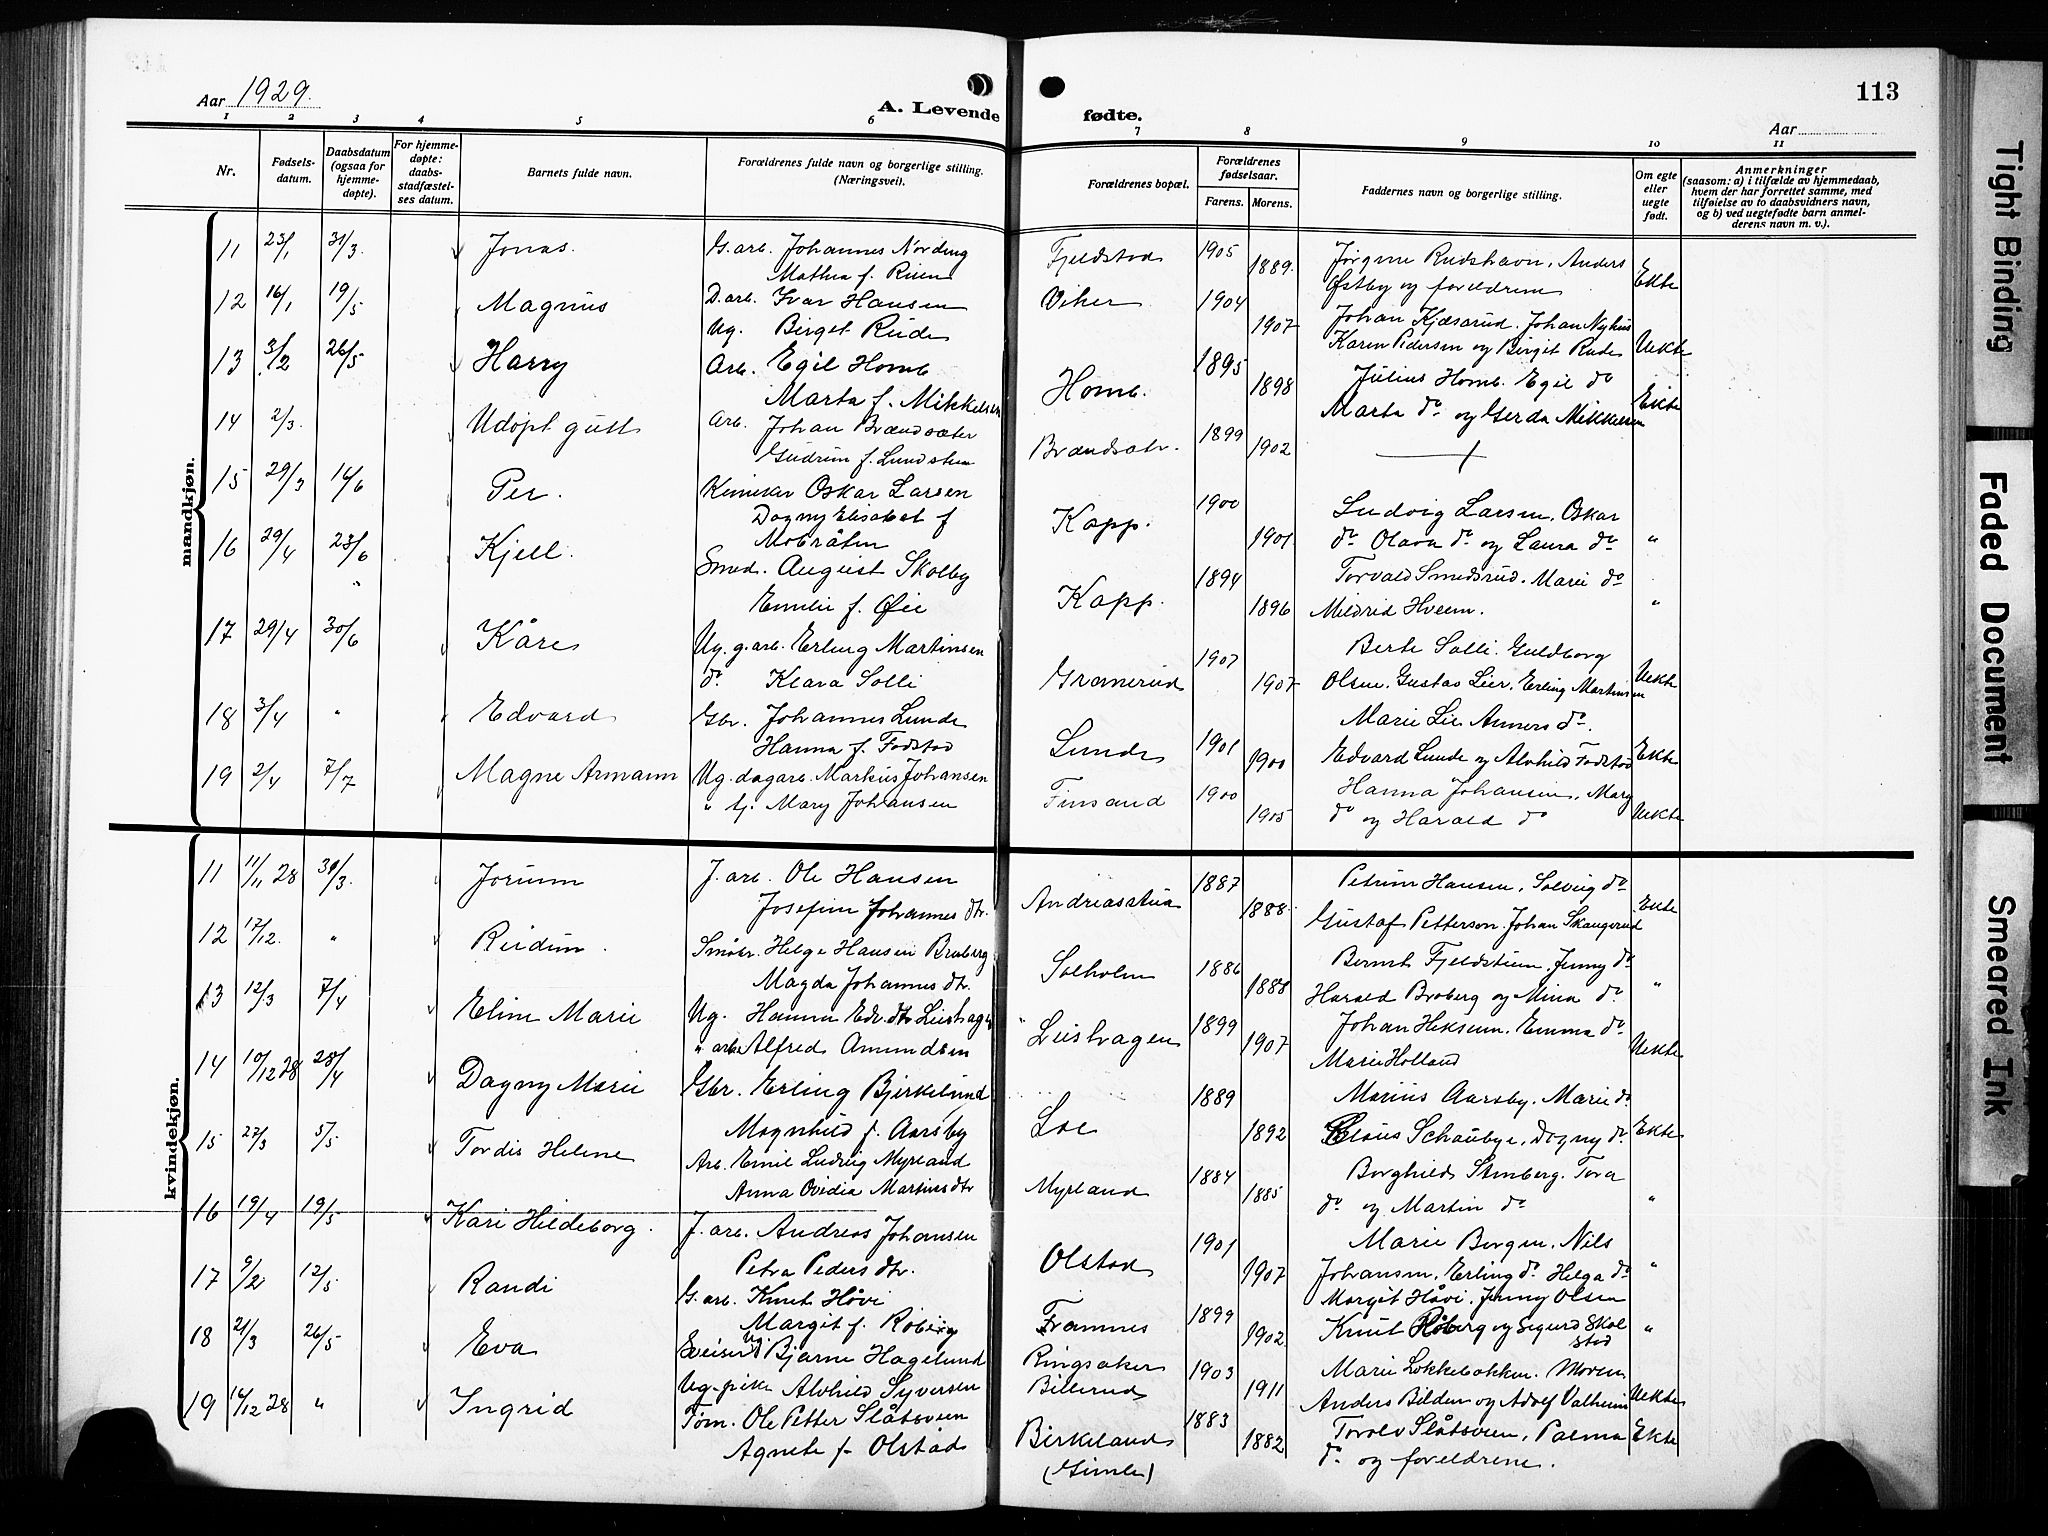 Aar 1929.
A. Levende fødte.
113
Aar
1 2 3 4 5 6 7 8 9 10 11
Nr.
Fødsels-
datum.
Daabsdatum
(ogsaa for
hjemme-
døpte).
For hjemme-
døpte:
daabs-
stadfæstel-
ses datum.
Barnets fulde navn.
Forældrenes fulde navn og borgerlige stilling.
(Næringsvei).
Forældrenes bopæl.
Forældrenes
fødselsaar.
Farens. Morens.
Faddernes navn og borgerlige stilling.
Om egte
eller
uegte
født.
Anmerkninger
(saasom: a) i tilfælde av hjemmedaab,
hvem der har forrettet samme, med
tilføielse av to daabsvidners navn,
og b) ved uegtefødte barn anmel-
derens navn m. v.).
mandkjøn.
11 23/1 31/3 Jonas. G. arb. Johannes Nordeng Fjeldstad 1905
Mathea f. Rusen 1889. Jørgine Rudshavn, Anders
Østby og foreldrene Ekte
12 16/1 19/5 Magnus D. arb. Ivar Hansen Viker 1904
Ug. Birgit Rude 1907 Johan Kjæsarud. Johan Nyhus
Karen Pedersen og Birgit Rude Uekte
13 3/2 26/5 Harry Arb. Egil Homb Homb. 1895
Marta f. Mikkelsen 1898 Julius Homb. Egil do
Marta do og Gerda Mikkelsen Ekte
14 2/3. Udøpt gutt Arb. Johan Brændsæter Brændsætr. 1899
Gudrun f. Lundstein 1902
15 29/3 16/6 Per. Oskar Larsen Kapp. 1900
Dagny Elisabet f 1901 Ludvig Larsen, Oskar
Mobråten do Olava do og Laura do "
16 29/4 23/6 Kjell. Smed. August Skolby Kapp. 1894
Emilie f. Øie 1896 Torvald Smedsrud. Marie do
Mildrid Hveem. "
17 29/4 30/6 Kåre Ug. g. arb. Erling Martinsen Gramerud 1907
do Klara Solli 1907 Berte Solli. Guldborg
Olsen. Gustav Lier, Erling Martinsen Uekte
18 3/4 " Edvard Gbr. Johannes Lunde Lunde 1901
Hanna f. Fodstad 1900 Marie Lie Anners do.
Edvard Lunde og Alvhild Fodstad Ekte
19 2/4 7/7 Magne Armann Ug. dagarb. Markus Johansen Finsand 1900
" tj. Mary Johansen 1905 Hanna Johansen, Mary
do og Harald do Uekte
kvindekjøn.
11 11/11 28 30/3. Jorunn J. arb. Ole Hansen Andreasstua 1887
Josefine Johannes dtr. 1888. Petrine Hansen, Solveig do
Gustaf Petterson. Johan Skaugerud Ekte
12 17/12. " Reidun. Småbr. Helge Hansen Broberg Solholm 1886
Magda Johannes dtr. 1888 Bernt Fjeldstuen. Jenny do
Harald Broberg og Mina do "
13 12/3 7/4 Eline Marie Ug. Hanna Edv. dtr Leishagen Leishagen 1899
" arb. Alfred Amundsen 1907 Johan Heksum. Emma do
Marie Holland Uekte
14 10/12 28 28/4 Dagny Marie Gbr. Erling Bjerkelund Loe 1889
Magnhild f. Aarsby 1892 Marius Aarsby. Marie do
Claus Schaubye, Dagny do Ekte
15 27/3 5/5 Tordis Helene Arb. Emil Ludvig Myrland Myrland 1884
Anna Ovidia Martins dtr 1885 Borghild Stenberg. Tora
do og Martin do "
16 19/4 19/5 Kari Hildeborg. J. arb. Andreas Johansen Olstad 1901
Petra Peders dtr. 1907 Marie Borgen, Nils
Johansen, Erling do Helga do "
17 9/2 12/5 Randi G. arb. Knut Høvi Framnes 1899
Margit f. Roberg 1902 Margit Høvi. Jenny Olsen
Knut Roberg og Sigurd Skol-
stad "
18 21/3 26/5 Eva Sveiser Ug. Bjarne Hagelund Ringsaker 1903
Ug. pike Alvhild Syversen Billerud 1911 Marie Løkkebakken. Moren
Anders Bilden og Adolf Valheim Uekte
19 16/12 28 " Ingrid Tøm. Ole Petter Slåtsveen Birkeland 1883
Agnete f. Olstad (Gimle) 1882 Torolv Slåtsveen, Palma
do og foreldrene. Ekte
Tight Binding
Faded Document
Smeared Ink